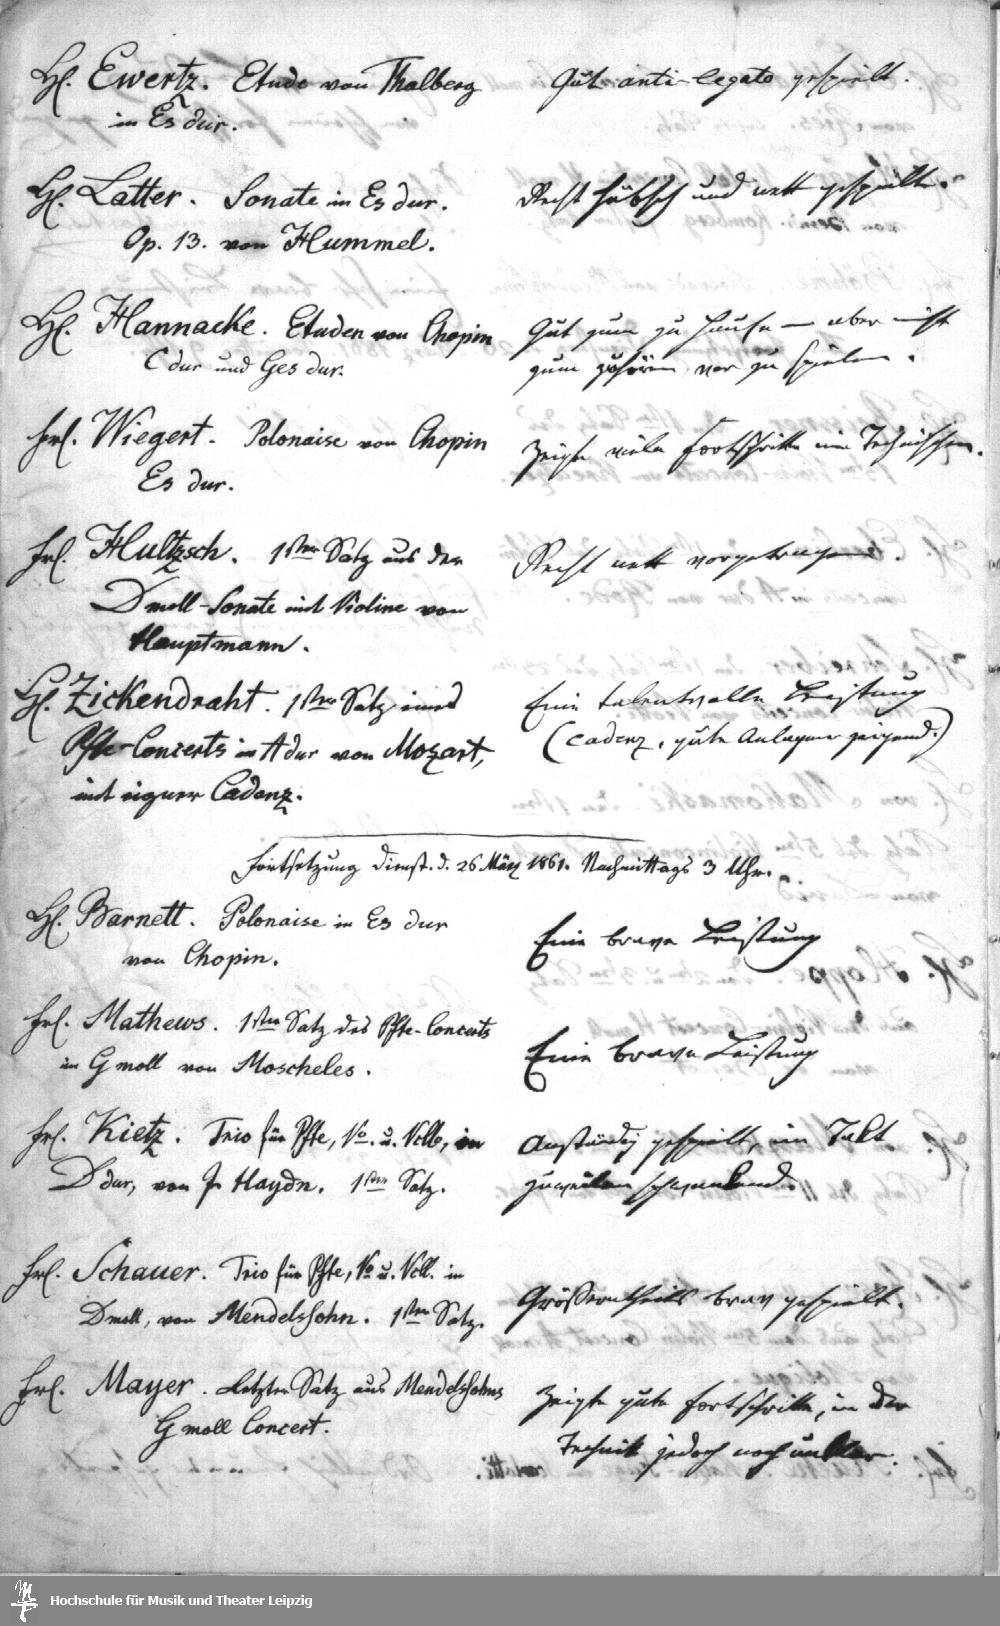 H. Ewertz. Etude von Thalberg
in Es dur.
Gut anti-legato gespielt.
H. Latter. Sonate in Es dur.
Op. 13. von Hummel.
Recht hübsch und nett gespielt.
H. Hannacke. Etuden von Chopin
C dur und Ges dur.
Gut zum zu Hause — aber nicht
zum zuhören, vor zu spielen.
Frl. Wiegert. Polonaise von Chopin
Es dur.
Zeigte viele Fortschritte im Technischen.
Frl. Hultzsch. 1ster Satz aus der
D moll-Sonate mit Violine von
Hauptmann.
Recht nett vorgetragen.
H. Zickendraht. 1ster Satz eines
Pfte-Concerts in A dur von Mozart,
mit eigner Cadenz.
Eine talentvolle Leistung
(Cadenz, gute Anlagen zeigend.)
Fortsetzung Dienst. d. 26 März 1861. Nachmittags 3 Uhr.
H. Barnett. Polonaise in Es dur
von Chopin.
Eine brave Leistung
Frl. Mathews. 1ster Satz des Pfte-Concerts
in G moll von Moscheles.
Eine brave Leistung
Frl. Kietz. Trio für Pfte, Vo. u. Vcllo, in
D dur, von J. Haydn. 1ster Satz.
Anständig gespielt, im Takt
zuweilen schwankend.
Frl. Schauer. Trio für Pfte, Vo u. Vcll. in
D moll, von Mendelssohn. 1ster Satz.
Grösstentheils brav gespielt.
Frl. Mayer. Letzter Satz aus Mendelssohns
G moll Concert.
Zeigte gute Fortschritte, in der
Technik jedoch noch unklar.
Hochschule für Musik und Theater Leipzig